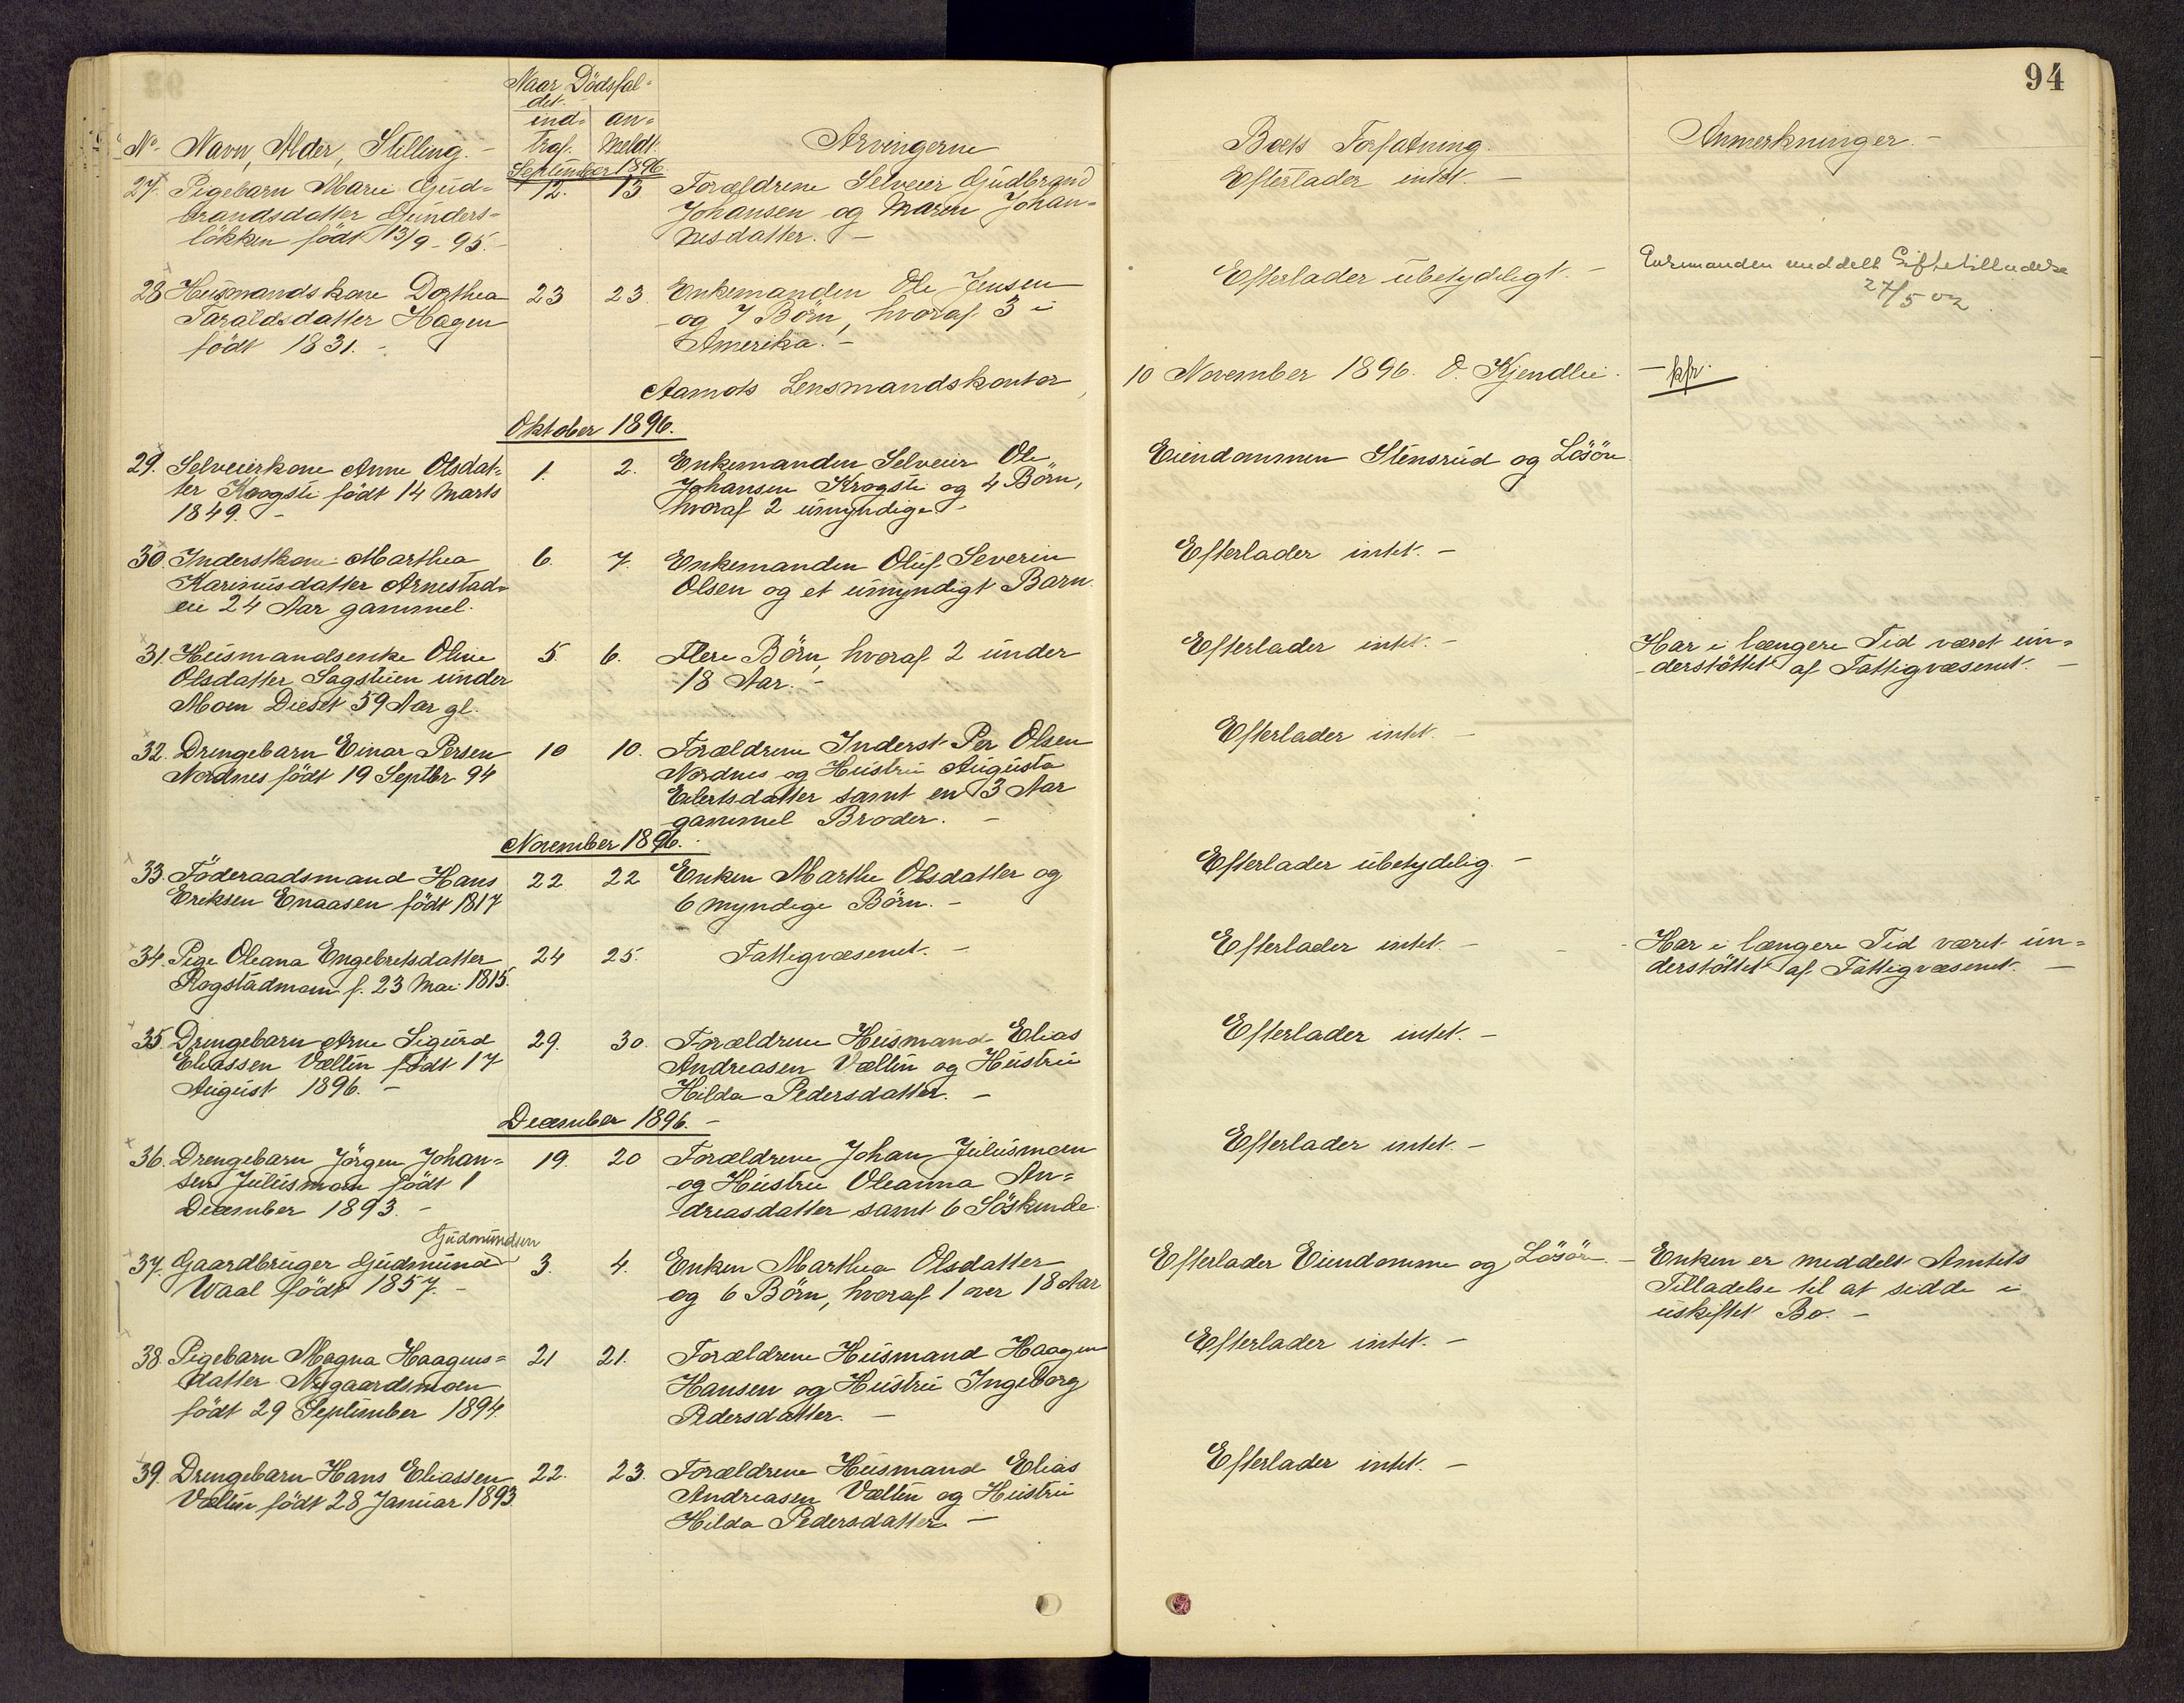 94
Naar Dödsfal=
det.
ind= an=
No. Navn, Alder, Stilling. - traf. meldt. Arvingerne Boets Forfatning. Anmerkninger. -
September 1896
27. Pigebarn Marie Gud= 12. 13 Forældrene Selveier Gudbrand Efterlader intet. -
brandsdatter Gunders= Johansen og Maren Johan=
lökken födt 13/9-95. nesdatter. -
28 Husmandskone Dorthea 23 23. Enkemanden Ole Jensen Efterlader ubetydeligt. - Enkemanden meddelt Giftetilladelse
Taraldsdatter Hagen og 7 Börn, hvoraf 3 i 27/5 02
födt 1831. - Amerika. -
Aamots Lensmandskontor, 10 November 1896. O. Kjendlie. - kfr.
Oktober 1896.
29. Selveierkone Anne Olsdat= 1. 2. Enkemanden Selveier Ole Eiendommen Stensrud og Lösöre
ter Krogsti födt 14 Marts Johansen Krogsti og 4 Börn,
1849. - hvoraf 2 umyndige. -
30. Inderstkone Marthea 6. 7. Enkemanden Oluf Severin Efterlader intet. -
Karinusdatter Arnestad= Olsen og et umyndigt Barn.
eie 24 Aar gammel.
31. Husmandsenke Oline 5. 6. Flere Börn, hvoraf 2 under Efterlader intet. - Har i længere Tid været un=
Olsdatter Sagstuen under 18 Aar. - derstöttet af Fattigvæsenet. -
Moen Deset 59 Aar gl.
32. Drengebarn Einar Persen 10 10. Forældrene Inderst Per Olsen Efterlader intet. -
Nordnes födt 19 Septbr 94 Nordnes og Hustru Augusta
Eilertsdatter samt en 3 Aar
gammel Broder. -
November 1896.
33. Föderaadsmand Hans 22 22 Enken Marthe Olsdatter og Efterlader ubetydelig. -
Eriksen Enaasen födt 1817 6 myndige Börn. -
34. Pige Oleana Engebretsdatter 24 25. Fattigvæsenet. - Efterlader intet. - Har i længere Tid været un=
Rogstadmoen f. 23 Mai 1815. derstöttet af Fattigvæsenet. -
35. Drengebarn Arne Sigurd 29. 30. Forældrene Husmand Elias Efterlader intet. -
Eliassen Vœltin födt 17 Andreasen Vœltin og Hustru
August 1896. - Hilda Pedersdatter. -
December 1896. -
36. Drengebarn Jörgen Johan= 19. 20 Forældrene Johan Juliusmoen Efterlader intet. -
sen Juliusmoen födt 1 og Hustru Oleanna An=
December 1893. - dreasdatter samt 6 Söskende.
Gudmundsen
37. Gaardbruger Gudmund 3. 4. Enken Marthea Olsdatter Efterlader Eiendomme og Lösöre. - Enken er meddelt Amtets
Waal födt 1857. - og 6 Börn, hvoraf 1 over 18 Aar Tilladelse til at sidde i
uskiftet Bo. -
38. Pigebarn Magna Haagens= 21 21. Forældrene Husmand Haagen Efterlader intet. -
datter Nygaardsmoen Hansen og Hustru Ingeborg
födt 29 September 1894. Pedersdatter. -
39. Drengebarn Hans Eliassen 22. 23. Forældrene Husmand Elias Efterlader intet. -
Vœltin födt 28 Januar 1893. Andreasen Vœltin og Hustru
Hilda Pedersdatter -